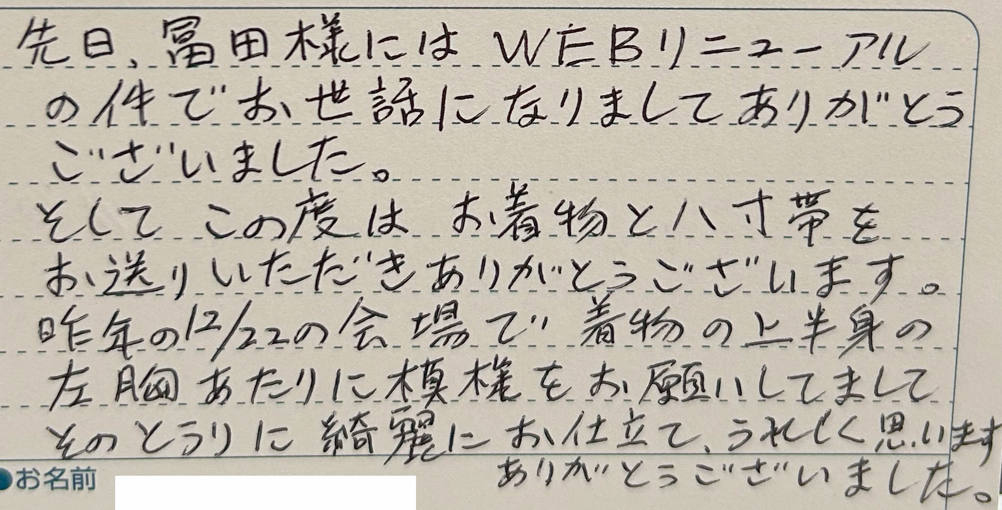 先日、冨田様には WEBリニューアル
の件でお世話になりましてありがとう
ございました。
そして この度は お着物と八寸帯を
お送りいただきありがとうございます。
昨年の12/22の会場で着物の上半身の
左胸あたりに模様をお願いしてまして
そのとうりに綺麗にお仕立て、うれしく思います
ありがとうございました。
●お名前